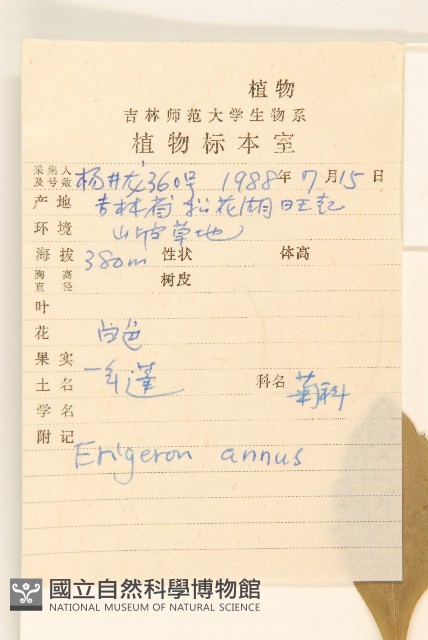 植物
吉林师范大学生物系
植物标本室
采集人及号数 杨井龙360号 1988年7月15日
产地 吉林省松花湖旺起
环境 山坡草地
海拔 380m 性状 体高
胸高直径 树皮
叶
花 白色
果实
土名 一年蓬 科名 菊科
学名
附记 Erigeron annus
國立自然科學博物館
NATIONAL MUSEUM OF NATURAL SCIENCE